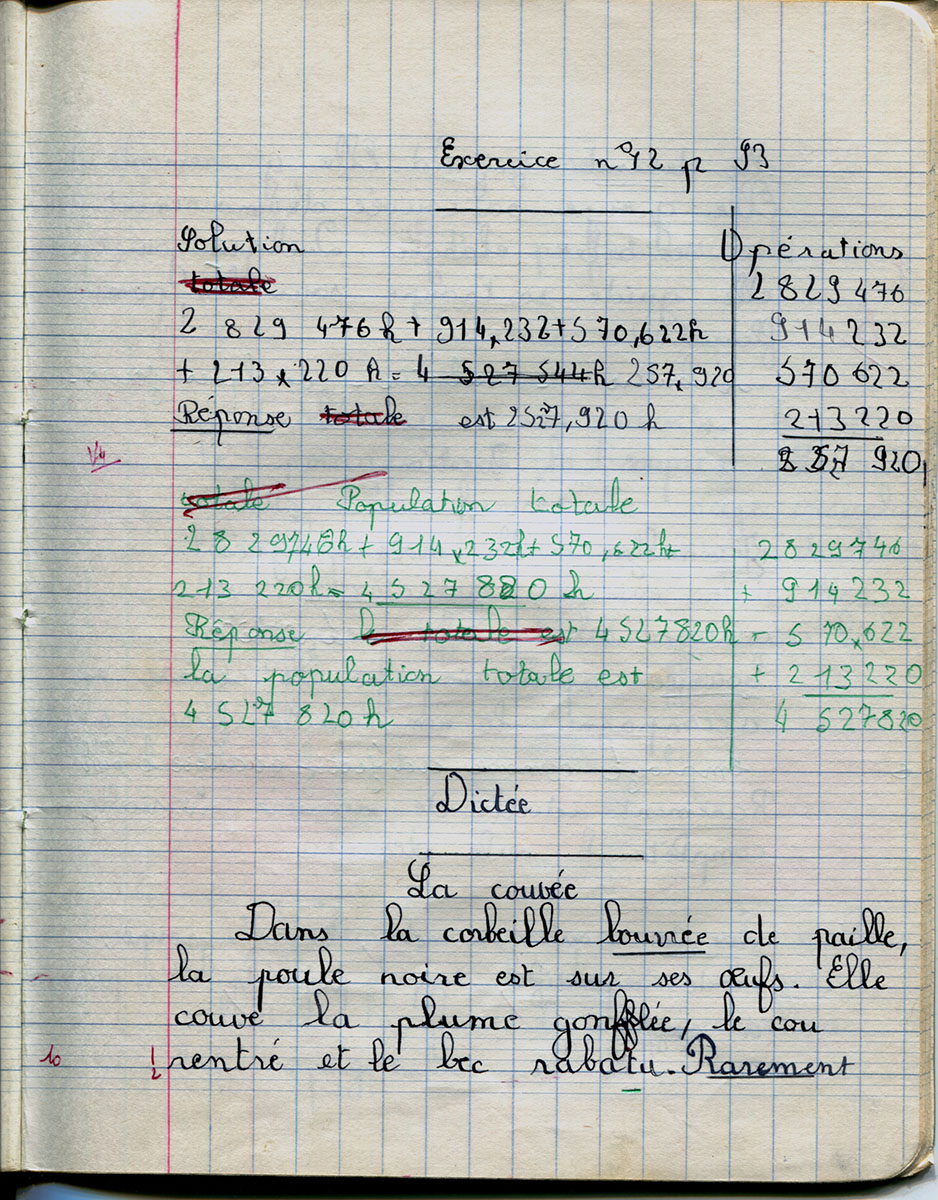 Exercice n° 12 p 93
Solution
totale
2 829 476 h + 914,232 + 570,622 h
+ 213 220 h = 4 527 544 h 257,920
Réponse totale est 2527,920 h
Opérations
2 829 476
914 232
570 622
213 220
257 920
totale Population totale
2829746h + 914,232h + 570,622h +
213 220h = 4 527 820 h
Réponse le totale est 4 527820h
la population totale est
4 527 820 h
2829746
+ 914232
- 570,622
+ 213220
4 527820
Dictée
La couvée
Dans la corbeille bourrée de paille,
la poule noire est sur ses œufs. Elle
couve la plume gonfflée, le cou
10 rentré et le bec rabatu. Rarement